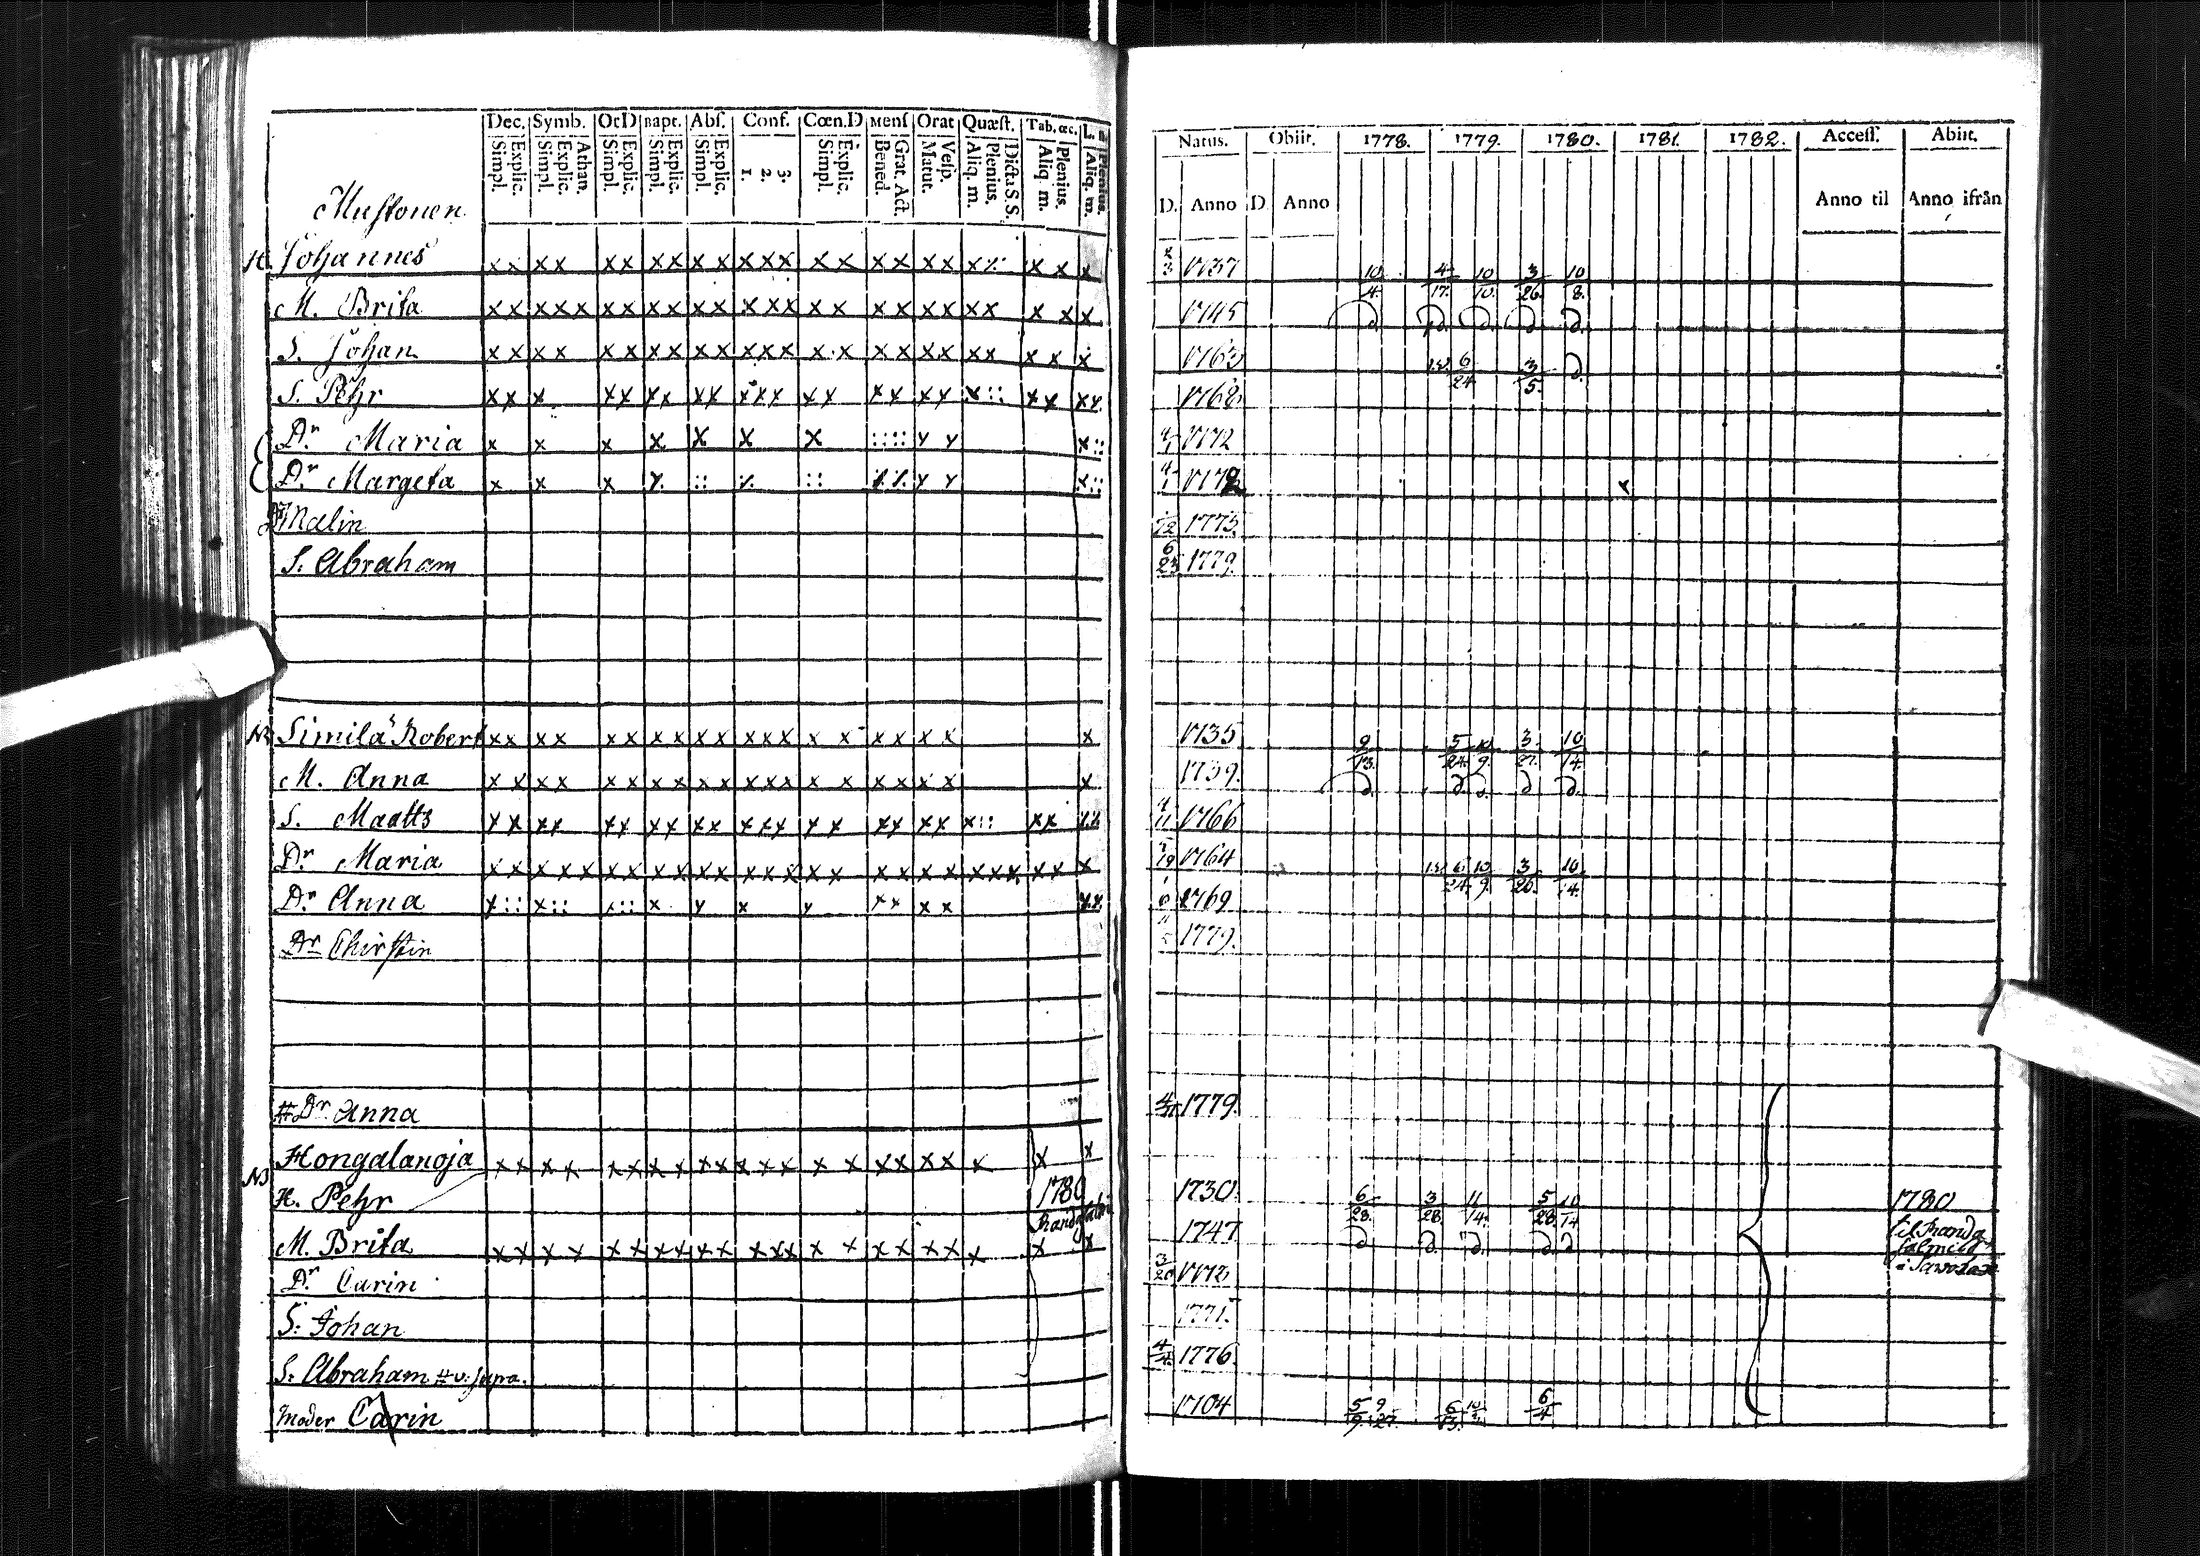 Dec. Symb. OrD Bapt. Abs. Conf. Cœn.D Mens Orat Quæst. Tab. œc. L.
Explic. Simpl. Athan. Explic. Simpl. Explic. Simpl. Explic. Simpl. Explic. Simpl. 3. 2. 1. Explic. Simpl. Grat. Act. Bened. Vesp. Matut. Dicta S.S. Plenius. Aliq. m. Plenius. Aliq. m. Plenius. Aliq. m.
Mustonen
H. Johannes
M. Brita
S. Johan
S. Pehr
Dr. Maria
Dr. Margeta
Malin
S. Abraham
Similä Robert
M. Anna
S. Maatts
Dr. Maria
Dr. Anna
Dr. Chirstin
# Dr. Anna
Hongalanoja
H. Pehr 1780
M. Brita
Dr. Carin
S. Johan
S. Abraham # v. supra.
Moder Carin
Natus. Obiit. 1778. 1779. 1780. 1781. 1782. Access. Abiit.
D. Anno D. Anno Anno til Anno ifrån
1737 10/4. 4/17. 10/10. 3/26. 10/8.
1745
1763 6/24 3/5.
1768
1772
1772
1775.
6/23 1779.
1735 9/13. 5/24. 10/9. 3/27. 10/14.
1739.
1766
1764 6/24. 10/9. 3/26. 10/14.
1769
1779.
1779.
1730. 6/28. 3/28. 11/14. 5/28. 10/14 1780
1747.
1771.
4/4. 1776.
1704 5/9. 9/27. 6/13. 6/4